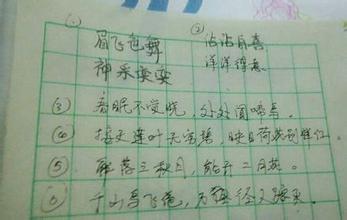 ① ②
眉飞色舞 沾沾自喜
神采奕奕 洋洋得意
③ 春眠不觉晓，处处闻啼鸟。
④ 接天莲叶无穷碧，映日荷花别样红。
⑤ 解落三秋叶，能开二月花。
⑥ 千山鸟飞绝，万